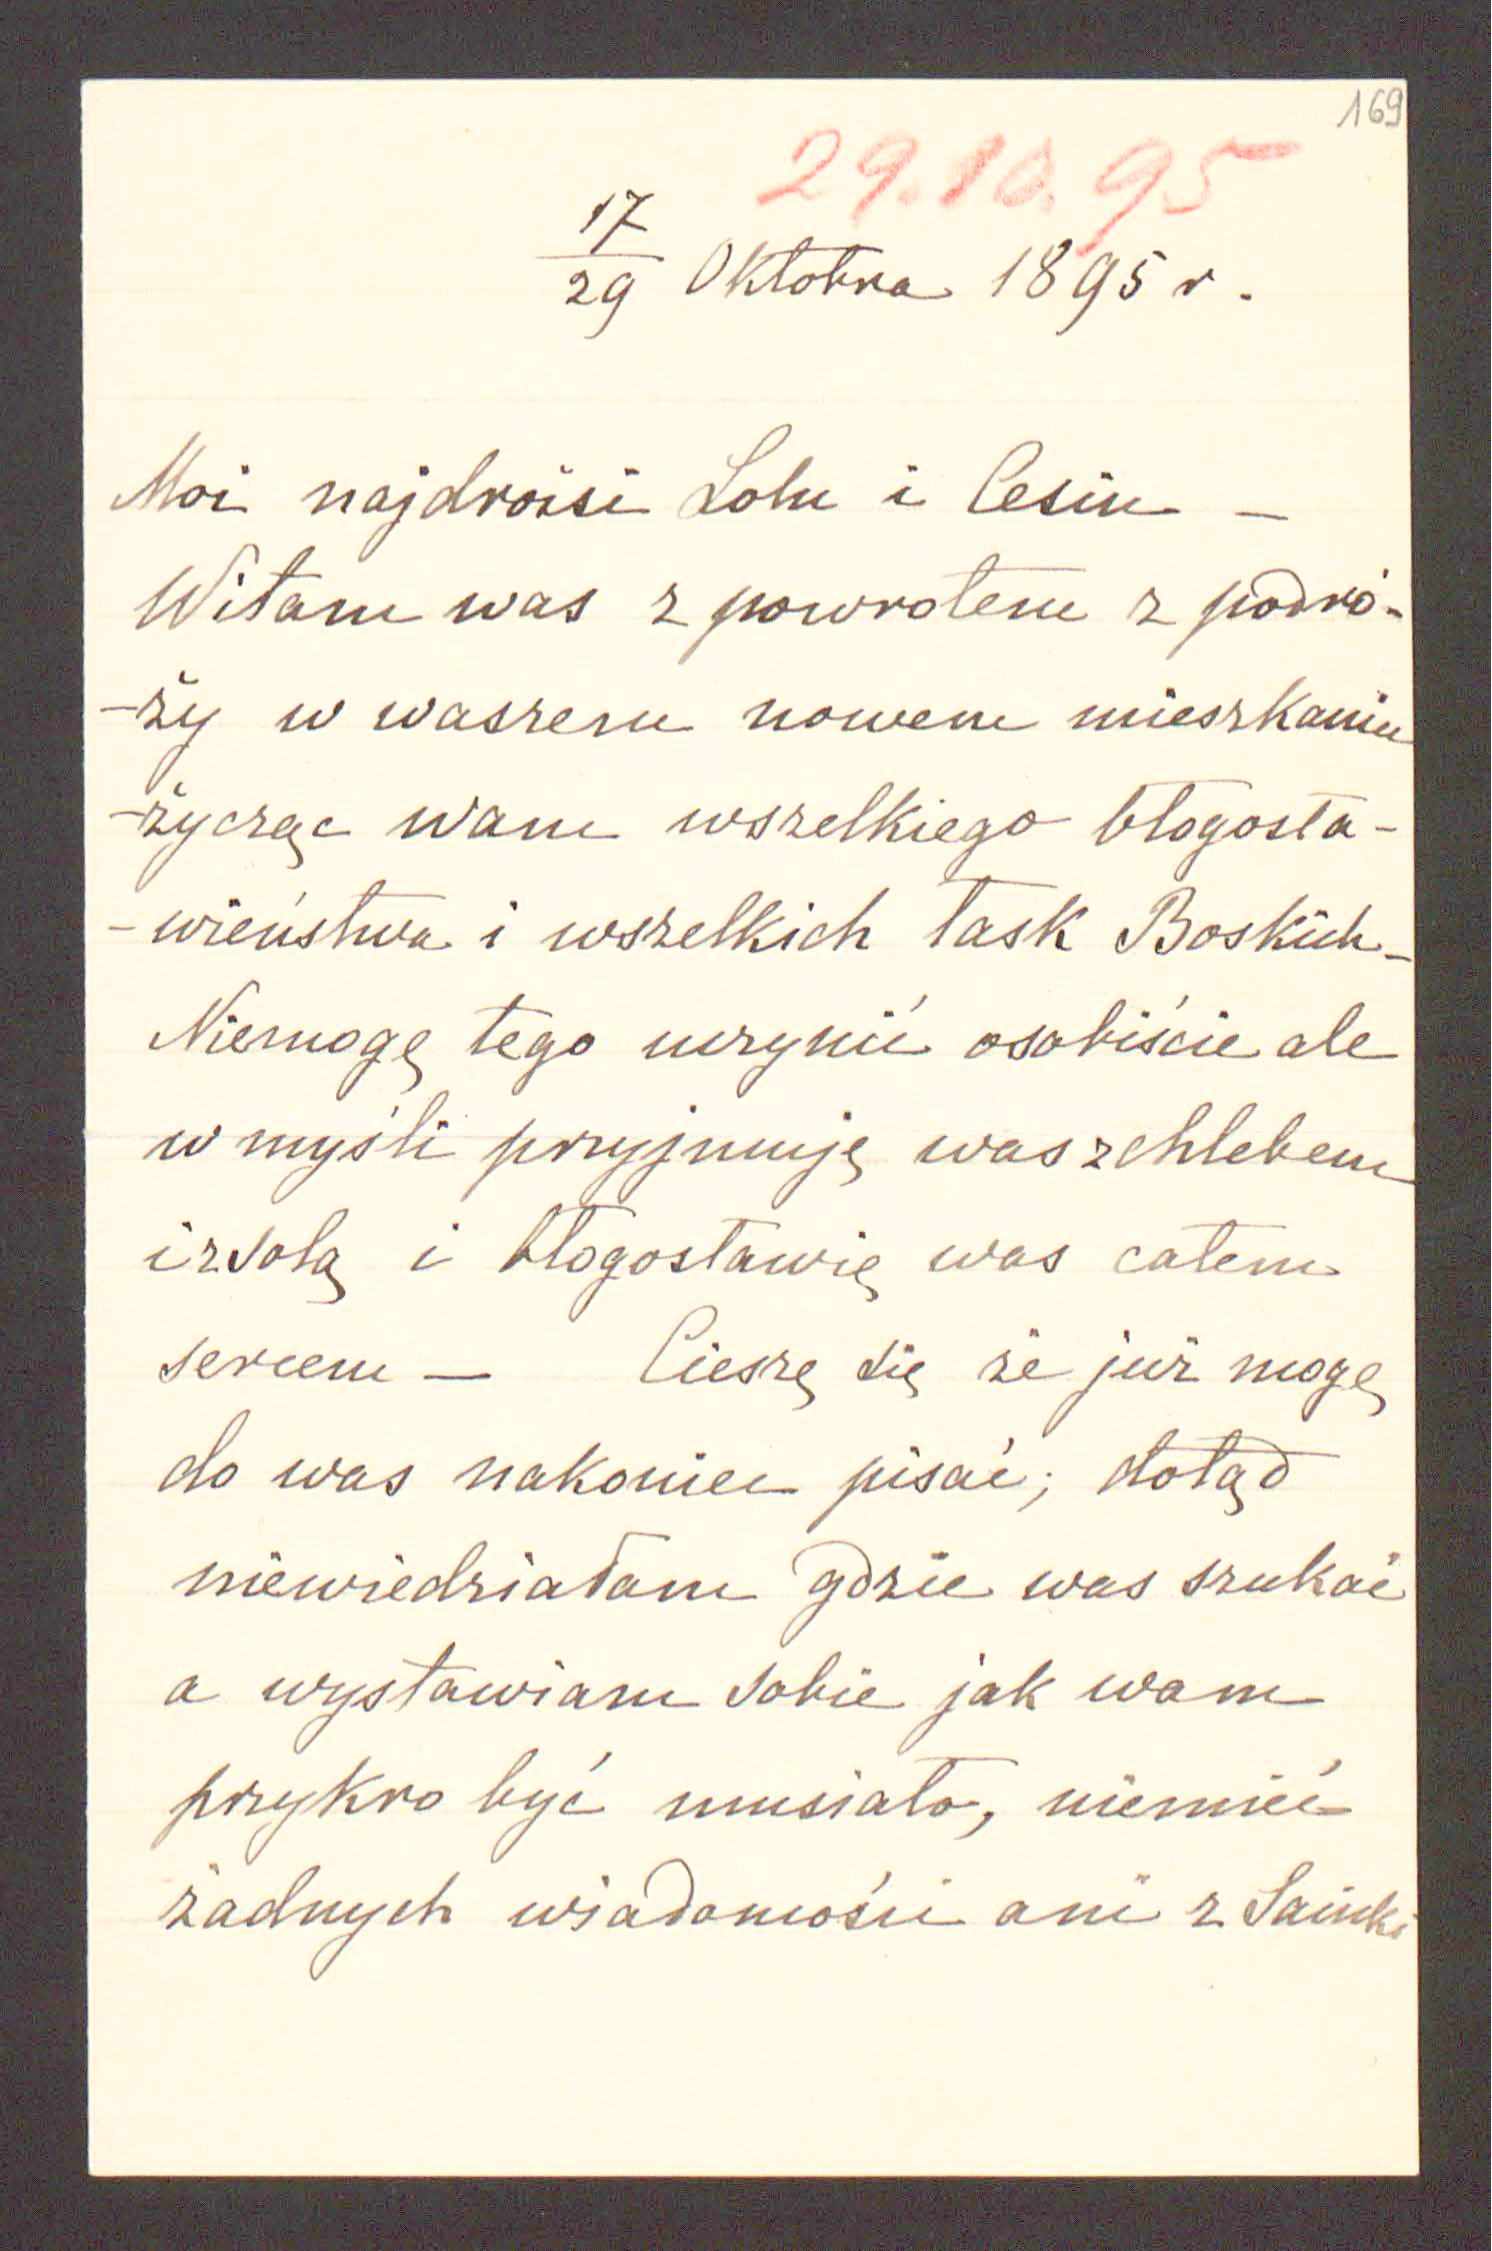 169
29.10.95
17/29 Oktobra 1895 r.
Moi najdrożsi Lolu i Cesiu —
Witam was z powrotem z podró-
-ży w waszem nowem mieszkaniu
-życząc wam wszelkiego błogosła-
-wieństwa i wszelkich łask Boskich -
Niemogę tego uczynić osobiście ale
w myśli przyjmuję was z chlebem
i z solą i błogosławię was całem
sercem — Cieszę się że już mogę
do was nakoniec pisać; dotąd
niewiedziałam gdzie was szukać
a wystawiam sobie jak wam
przykro być musiało, niemieć
żadnych wiadomości ani z